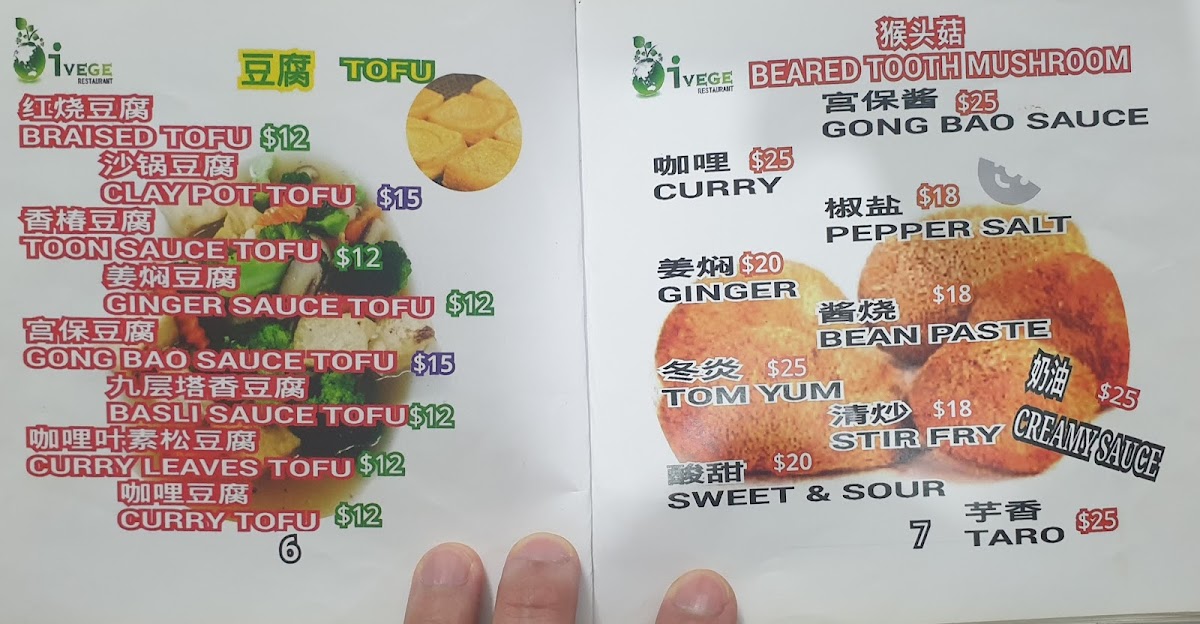 i VEGE
RESTAURANT
豆腐 TOFU
红烧豆腐
BRAISED TOFU $12
沙锅豆腐
CLAY POT TOFU $15
香椿豆腐
TOON SAUCE TOFU $12
姜焖豆腐
GINGER SAUCE TOFU $12
宫保豆腐
GONG BAO SAUCE TOFU $15
九层塔香豆腐
BASLI SAUCE TOFU $12
咖哩叶素松豆腐
CURRY LEAVES TOFU $12
咖哩豆腐
CURRY TOFU $12
6
i VEGE
RESTAURANT
猴头菇
BEARED TOOTH MUSHROOM
宫保酱 $25
GONG BAO SAUCE
咖哩 $25
CURRY
椒盐 $18
PEPPER SALT
姜焖 $20
GINGER
酱烧 $18
BEAN PASTE
冬炎 $25
TOM YUM
奶油 $25
CREAMY SAUCE
清炒 $18
STIR FRY
酸甜 $20
SWEET & SOUR
芋香 $25
TARO
7